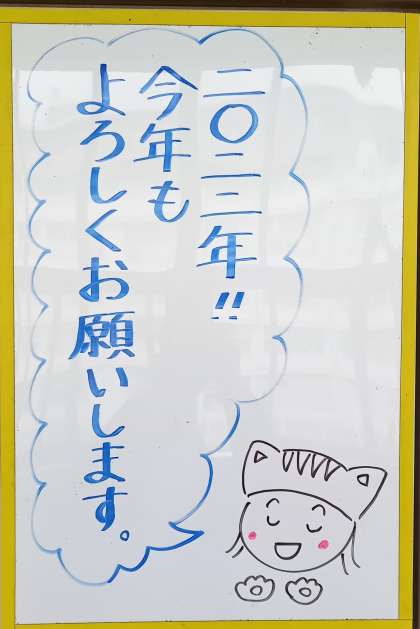 二〇二三年!!
今年も
よろしくお願いします。